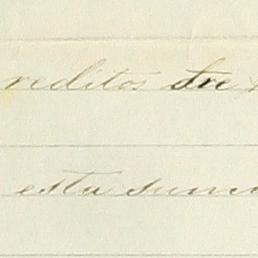 reditos dre
esta suma